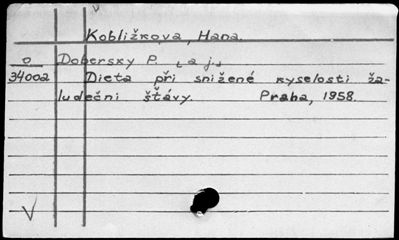 Kobližkova, Hana.
O Dobersky P. [a j.]
34002 Dieta při snížené kyselosti ža-
ludeční šťávy. Praha, 1958.
V